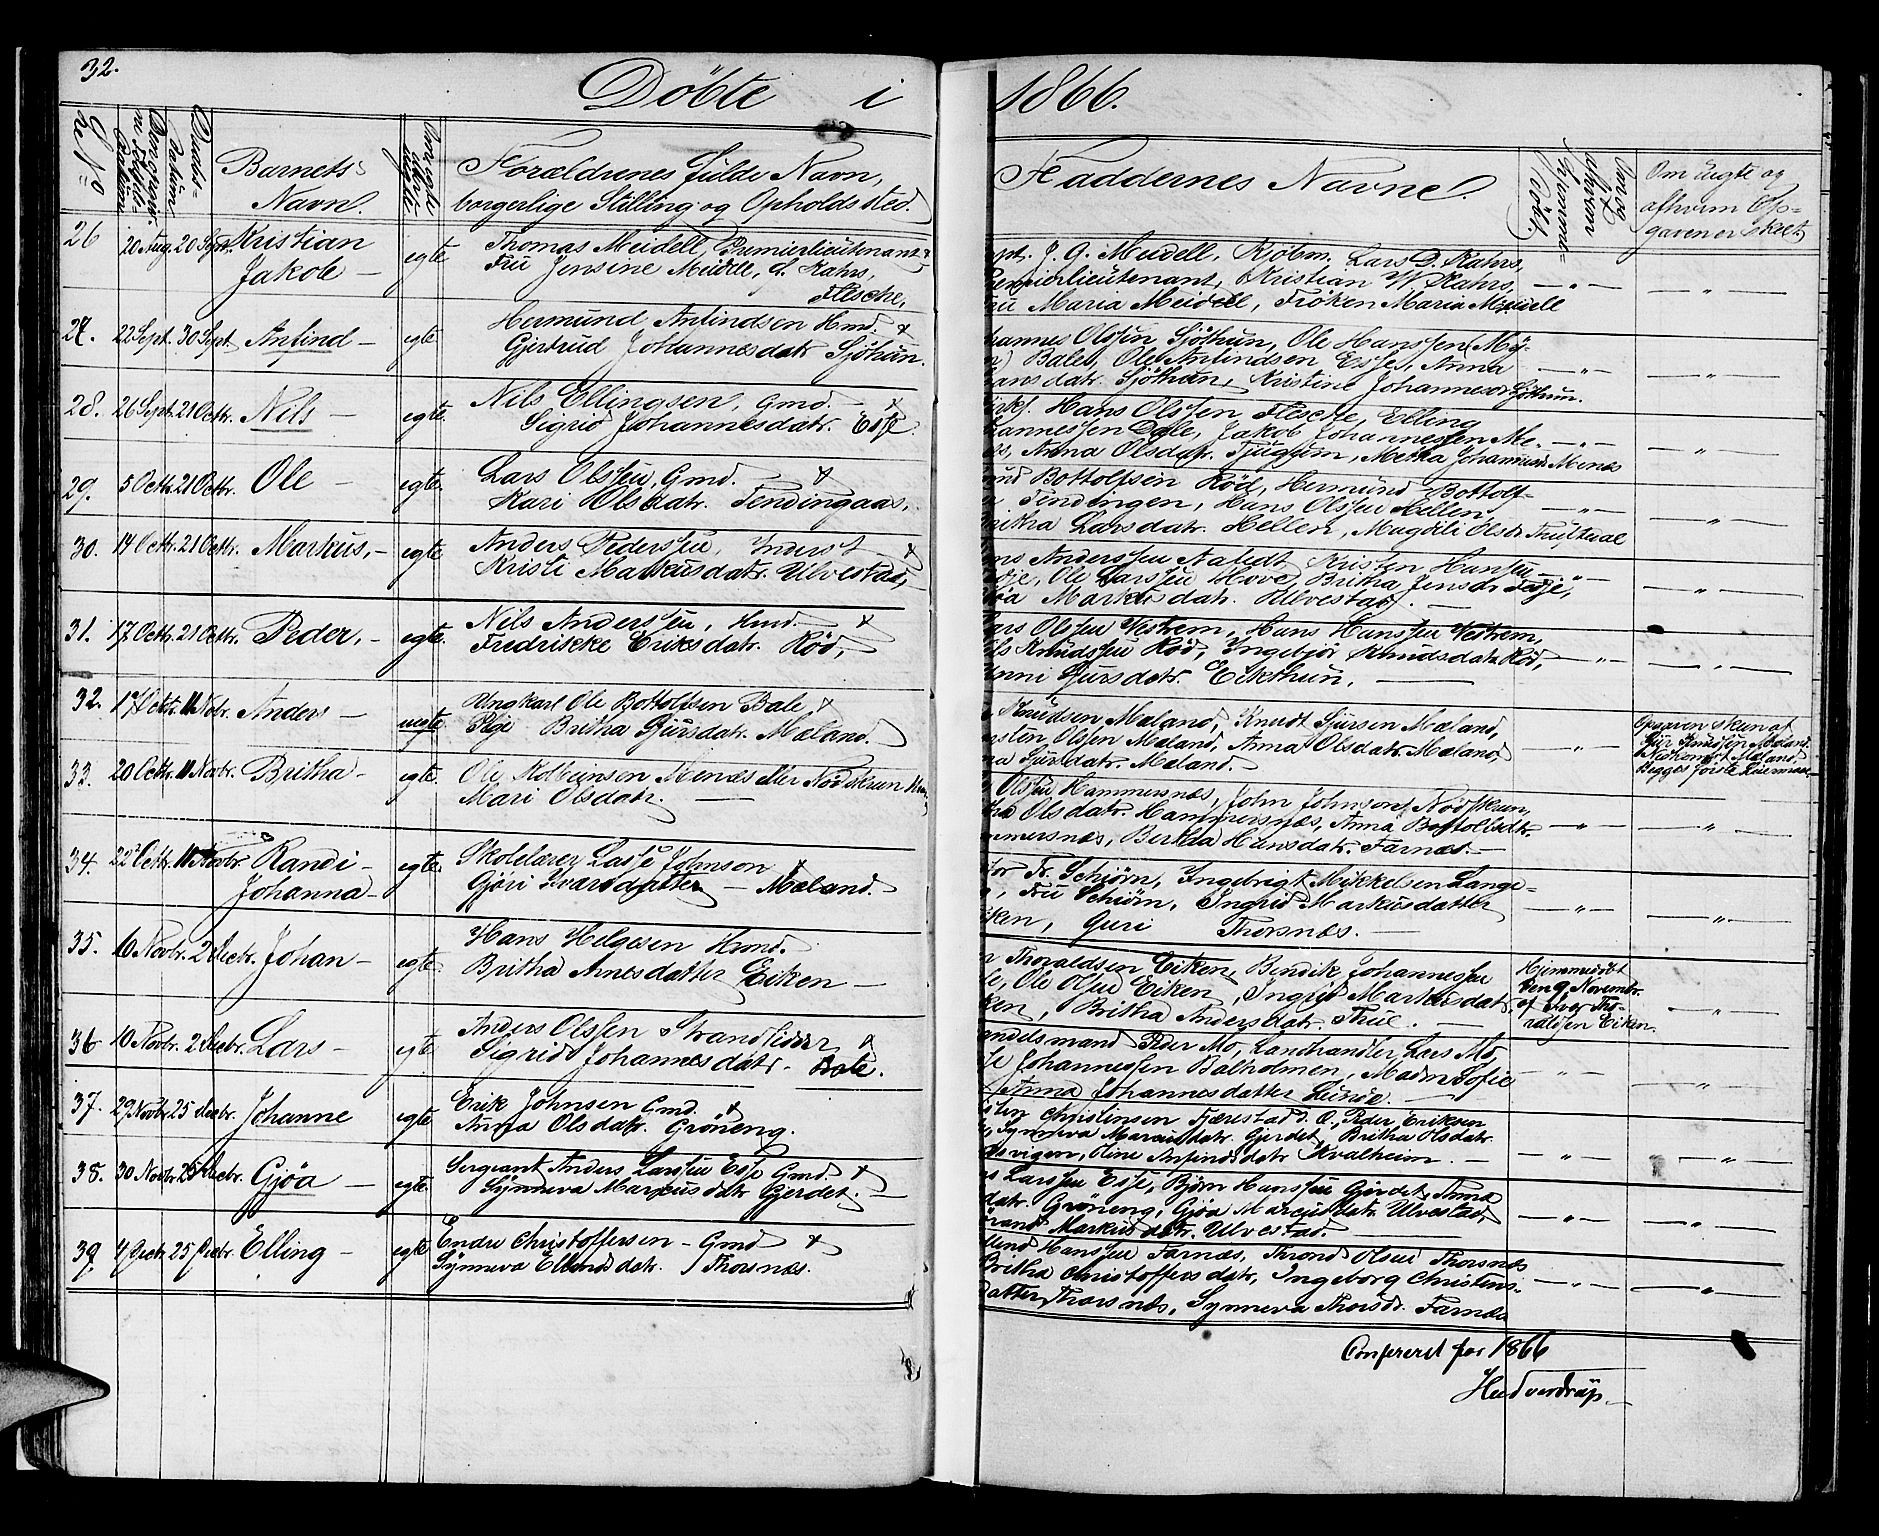 32.
Döbte i
1866.
Barnets
Navn.
Forældrenes fulde Navn,
borgerlige Stilling og Opholdssted.
Faddernes Navne.
Om Uægte og
af hvem Op-
gaven er skeet
26 20 Aug. 20 Sept. Kristian
Jakob —
egte
Thomas Meidell, Premierlieutenant &
Fru Jensine Meidell, f. Kahrs,
Flesche,
J. G. Meidell, Kjöbm. Lars D. Kahrs,
Premierlieutenant, Kristian W. Kahrs,
Fru Maria Meidell, Fröken Maria Meidell
27. 22 Sept. 30 Sept. Anfind —
egte
Hermund Anfindsen Hmd. &
Gjertrud Johannesdatr. Sjöthun.
hannes Olssen Sjöthun, Ole Hanssen (My-
Bale, Ole Anfindsen Esse, Anna
Hansdatr. Sjöthun, Kristine Johannesdr Sjöthun.
28. 26 Sept. 21 Octbr. Nils —
egte.
Nils Ellingsen, Gmd. — &
Sigrid Johannesdatr. Esse.
Kirks. Hans Olssen Flesche, Elling
hannessen Dale, Jakob Johannessen Me-
Anna Olsdatr. Tjugum, Metha Johannesdr Menæs
29. 5 Octb. 21 Octbr. Ole —
egte.
Lars Olssen, Gmd. &
Kari Olsdatr. Tendingaas,
und Bottolfsen Röd, Hermund Bottolf-
Tendingen, Hans Olssen Hellen,
Britha Larsdatr. Hellen, Magdli Olsdr
30. 14 Octbr. 21 Octbr. Markus, —
egte
Anders Pederssen, Inderst &
Kristi Markusdatr. Ulvestad,
Anderssen Nalidt Kristen Hanssen
Ole Larssen Hove, Britha Jensdr
Markusdatr. Ulvestad. —
31. 17 Octbr. 21 Octbr. Peder, —
egte.
Nils Anderssen, Hmd. &
Fredrikke Eriksdatr. Röd,
Lars Olssen Vestrem, Hans Hanssen Vestrem,
Nils Knudssen Röd, Ingebjör Knudsdatr. Röd,
Anni Sjursdatr. Eikthun. —
32. 17 Octbr. 11 Novbr. Anders —
uegte
Ungkarl Ole Bottolfsen Bale &
Pige Britha Sjursdatr. Mæland.
Knudsen Mæland, Knudt Sjursen Mæland,
Olssen Mæland, Anna Olsdatr. Mæland,
Sjursdatr. Mæland.
Opgaven skeen af
Sjur Knudssen Mæland
Mæland,
Begges förste Leiermaal
33. 20 Octbr. 11 Novbr. Britha —
egte.
Ole Kolbeinsen Menæs eller Nödskrun
Mari Olsdatr. —
Olssen Hammersnæs, John Johnson Nödskrun,
Olsdatr. Hammersnæs, Anna Bottolfsdtr.
Hammersnæs, Bertha Hansdatr. Farnæs. —
34. 22 Octbr. 11 Novbr. Randi —
Johanna —
egte.
Skolelærer Lasse Johnson &
Gjöri Ivarsdatter — Mæland.
Fr. Schiörn, Ingebrigt Mikkelsen Lange-
Fru Schiörn, Ingrid Markusdatter
Eiken, Guri Thorsnæs. —
35. 6 Novbr. 2 Decbr. Johan —
egte.
Hans Helgesen Hmd.
Britha Arnesdatter Eiken —
Thoraldsen Eiken, Bendik Johannessen
Ole Olssen Eiken, Ingrid Markusdatr.
Eiken, Britha Andersdatr. Thue. —
Hjemmedöbt
den 9 Novembr.
af Iver Tho-
raldsen Eiken.
36 10 Novbr. 2 Decbr. Lars —
egte
Anders Olssen Strandsidder &
Sigrid Johannesdatr. Bale.
Handelsmand Peder Mo, Landhandler Lars Mo,
Johannessen Balholmen, Madm Sofie
Anna Johannesdatter Lunde. —
37. 29 Novbr. 25 Decbr. Johanne
egte
Erik Johnsen Gmd. &
Anna Olsdatr. Gröneng.
Christensen Fjærestad, Ö. Peder Eriksen
Synneva Marcusdatr. Gjerdet, Britha Olsdatr.
Oline Anfindsdatr Kvalheim. —
38. 30 Novbr. 25 Decbr. Gjöa —
egte.
Sergeant Anders Larssen Esse Gmd. &
Synneva Marcusdatr Gjerdet. —
Larssen Esse, Björn Hanssen Gjerdet, Anna
datr. Gröneng, Gjöa Marcusdatr. Ulvestad,
Brand Markusdatr. Ulvestad. —
39. 4 Decbr. 25 Decbr. Elling —
egte
Endre Christoffersen — Gmd &
Synneva Ellendsdatr. Thorsnæs.
Hanssen Farnæs, Thrond Olsen Thorsnæs
Britha Christoffersdatr, Ingeborg Christens-
datter Thorsnæs, Synneva Thorsdr. Farnæs
Confereret for 1866